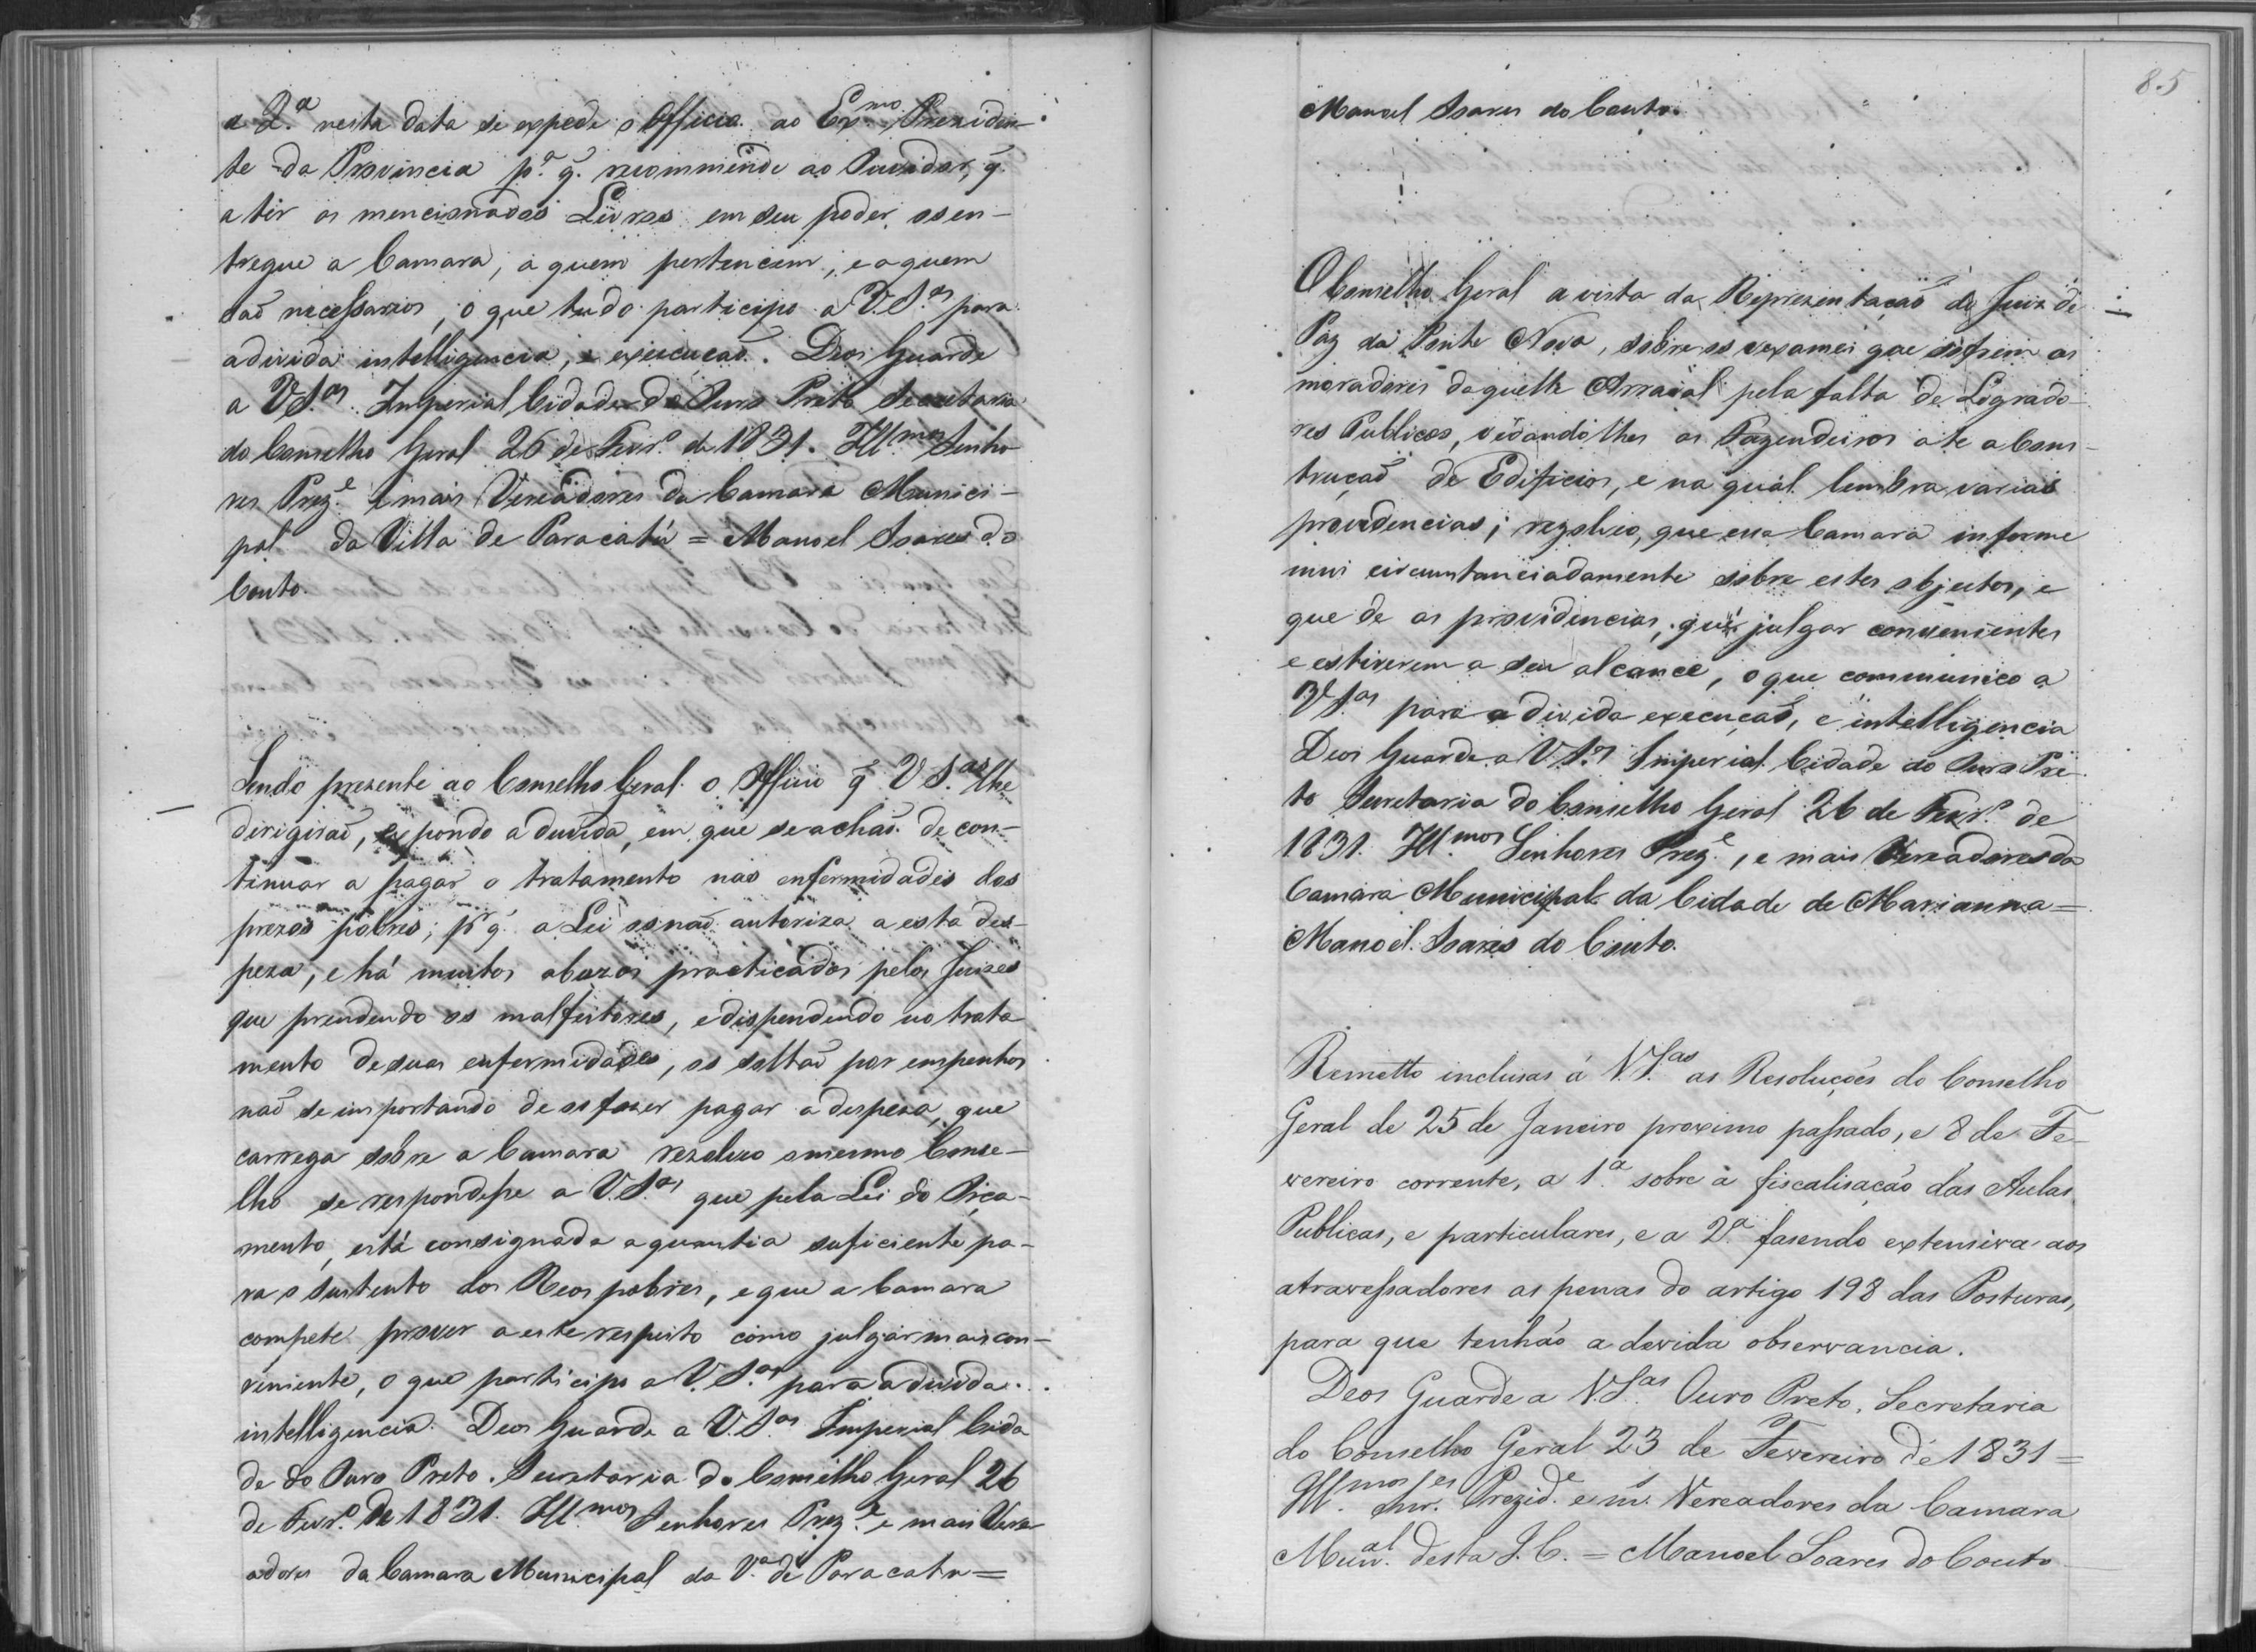 a 2.ª nesta data se expede o Officio ao Ex.mo Preziden-
te da Provincia p.ª q̃. recommende ao Ouvidor, q̃.
a tér os mencionados Livros em seu poder, os en-
tregue a Camara, a quem pertencem, e a quem
saõ necessarios, o que tudo participo a V.S.as para
a divida intelligencia, e execuçaõ. Deos Guarde
a V.S.as Imperial Cidade do Ouro Preto Secretaria
do Conselho Geral 26 de Fevr.º de 1831. Ill.mos Senho
res Prez.e e mais Vereadores da Camara Munici-
pal da Villa de Paracatú = Manoel Soares do
Couto.
Sendo prezente ao Conselho Geral o Officio q̃ V S.as lhe
dirigiraõ, expondo a duvida, em que se achaõ de con-
tinuar a pagar o tratamento nas enfermidades dos
prezos pobres; p.r q̃. a Lei os naõ autoriza a esta des-
peza, e há muitos abuzos practicados pelos Juizes
que prendendo os malfeitores, e dispendendo no trata
mento de suas enfermidades, os soltaõ por empenhos
naõ se importando de os fazer pagar a despeza, que
carrega sobre a Camara rezolveo o mesmo Conse-
lho se respondesse a V.S.as que pela Lei do Orça-
mento, está consignada a quantia suficiente pa-
ra o sustento dos Reos pobres, e que a Camara
compete prover a este respeito como julgar mais con-
veniente, o que participo a V.S.as para a divida
intelligencia. Deos Guarde a V.S.as Imperial Cida
de do Ouro Preto. Secretaria do Conselho Geral 26
de Fevr.º de 1831. Ill.mos Senhores Prez.e e mais Vere
adores da Camara Municipal da V.ª de Paracatu =
85
Manoel Soares do Couto.
O Conselho Geral a vista da Reprezentaçaõ do Juiz de
Paz da Ponte Nova, sobre os vexames que sofrem os
moradores daquelle Arraial pela falta de Logrado
res Publicos, vedandolhes os Fazendeiros ate a Cons-
truçaõ de Edificios, e na qual lembra varias
providencias; rezolveo, que essa Camara informe
mui circunstanciadamente sobre estes objectos, e
que de as providencias, que julgar convenientes
e estiverem a seu alcance, o que communico a
V.S.as para a divida execuçaõ, e intelligencia
Deos Guarde a V.S.as Imperial Cidade do Ouro Pre
to Secretaria do Conselho Geral 26 de Fevr.º de
1831. Ill.mos Senhores Prez.e, e mais Vereadores da
Camara Municipal da Cidade de Marianna =
Manoel Soares do Couto.
Remetto inclusas á V.S.as as Resoluções do Conselho
Geral de 25 de Janeiro proximo passado, e 8 de Fe-
vereiro corrente, a 1.ª sobre a fiscalisação das Aulas
Publicas, e particulares, e a 2.ª fasendo extensiva aos
atravessadores as penas do artigo 198 das Posturas,
para que tenhão a devida observancia.
Deos Guarde a V.S.as Ouro Preto, Secretaria
do Conselho Geral 23 de Fevereiro de 1831 =
Ill.mos Snr.es Prezid.e e m.s Vereadores da Camara
Mun.al desta I. C. = Manoel Soares do Couto